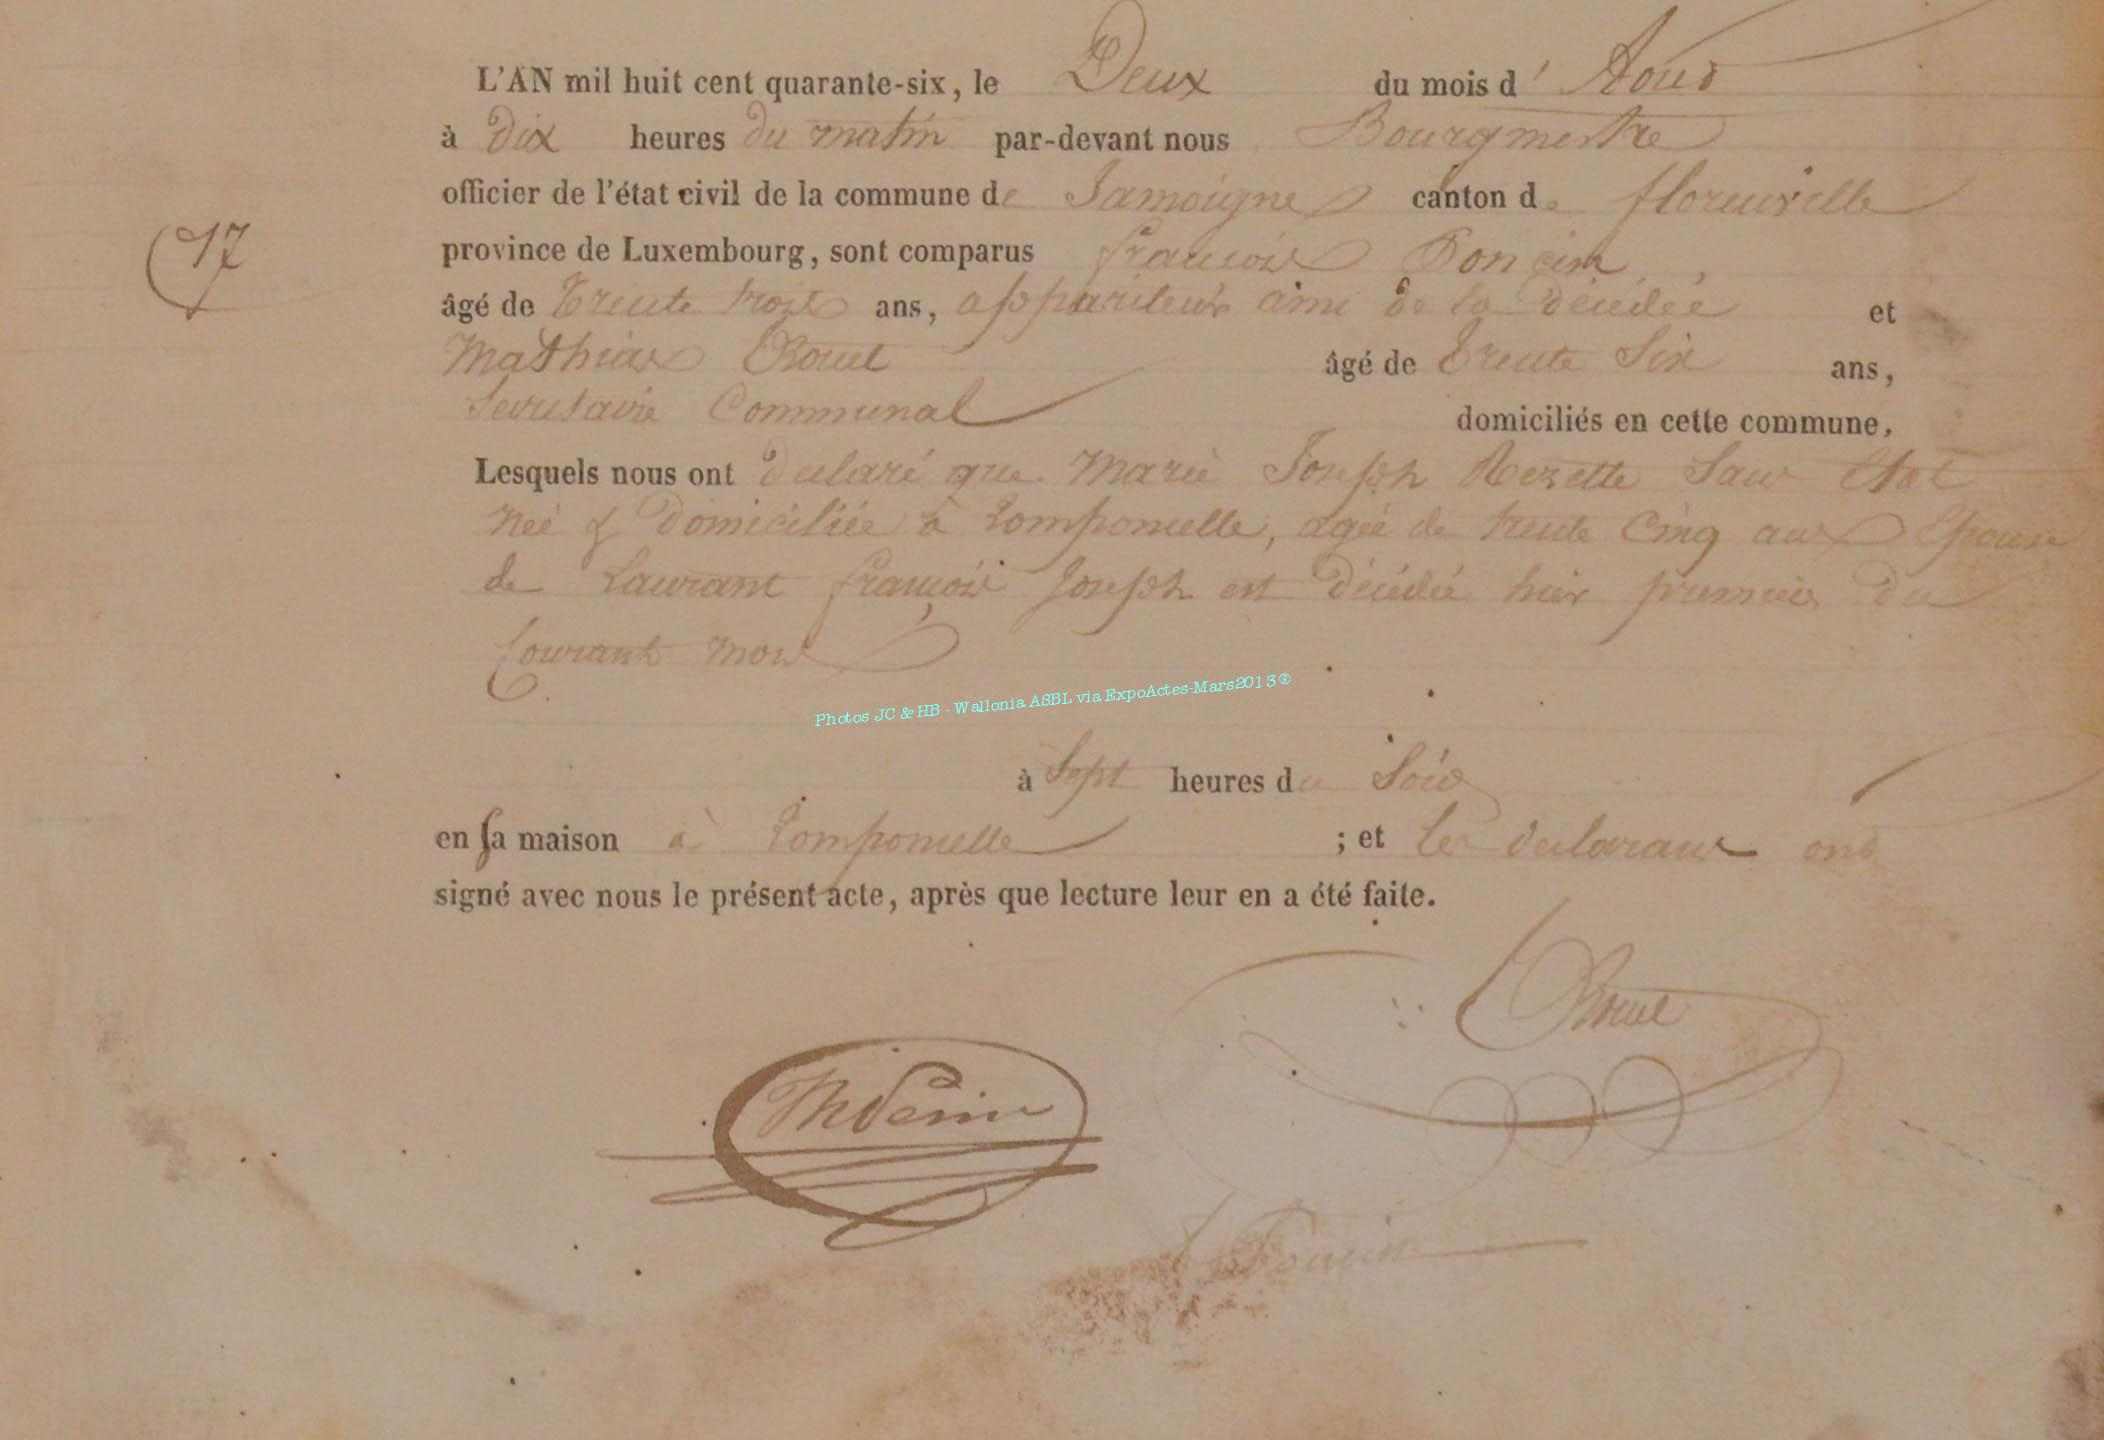 L'AN mil huit cent quarante-six, le Deux du mois d' Aout
à dix heures du matin par-devant nous Bourgmestre
officier de l'état civil de la commune de Jamoigne canton de florenville
17
province de Luxembourg, sont comparus françois Poncin
âgé de trente trois ans, appariteur ami de la décédée et
Mathias Rouel âgé de trente Six ans,
Secretaire Communal domiciliés en cette commune,
Lesquels nous ont declaré que Marie Joseph Rezette Sans Etat
neé & domiciliée à Romponcelle, agée de trente Cinq ans Epouse
de Laurant françois Joseph est décédée hier premier du
Courant mois
Photos JC & HB - Wallonia ASBL via ExpoActes-Mars2013®
à Sept heures du Soir
en sa maison à Romponcelle ; et les declarans ont
signé avec nous le présent acte, après que lecture leur en a été faite.
Rouel
Poncin